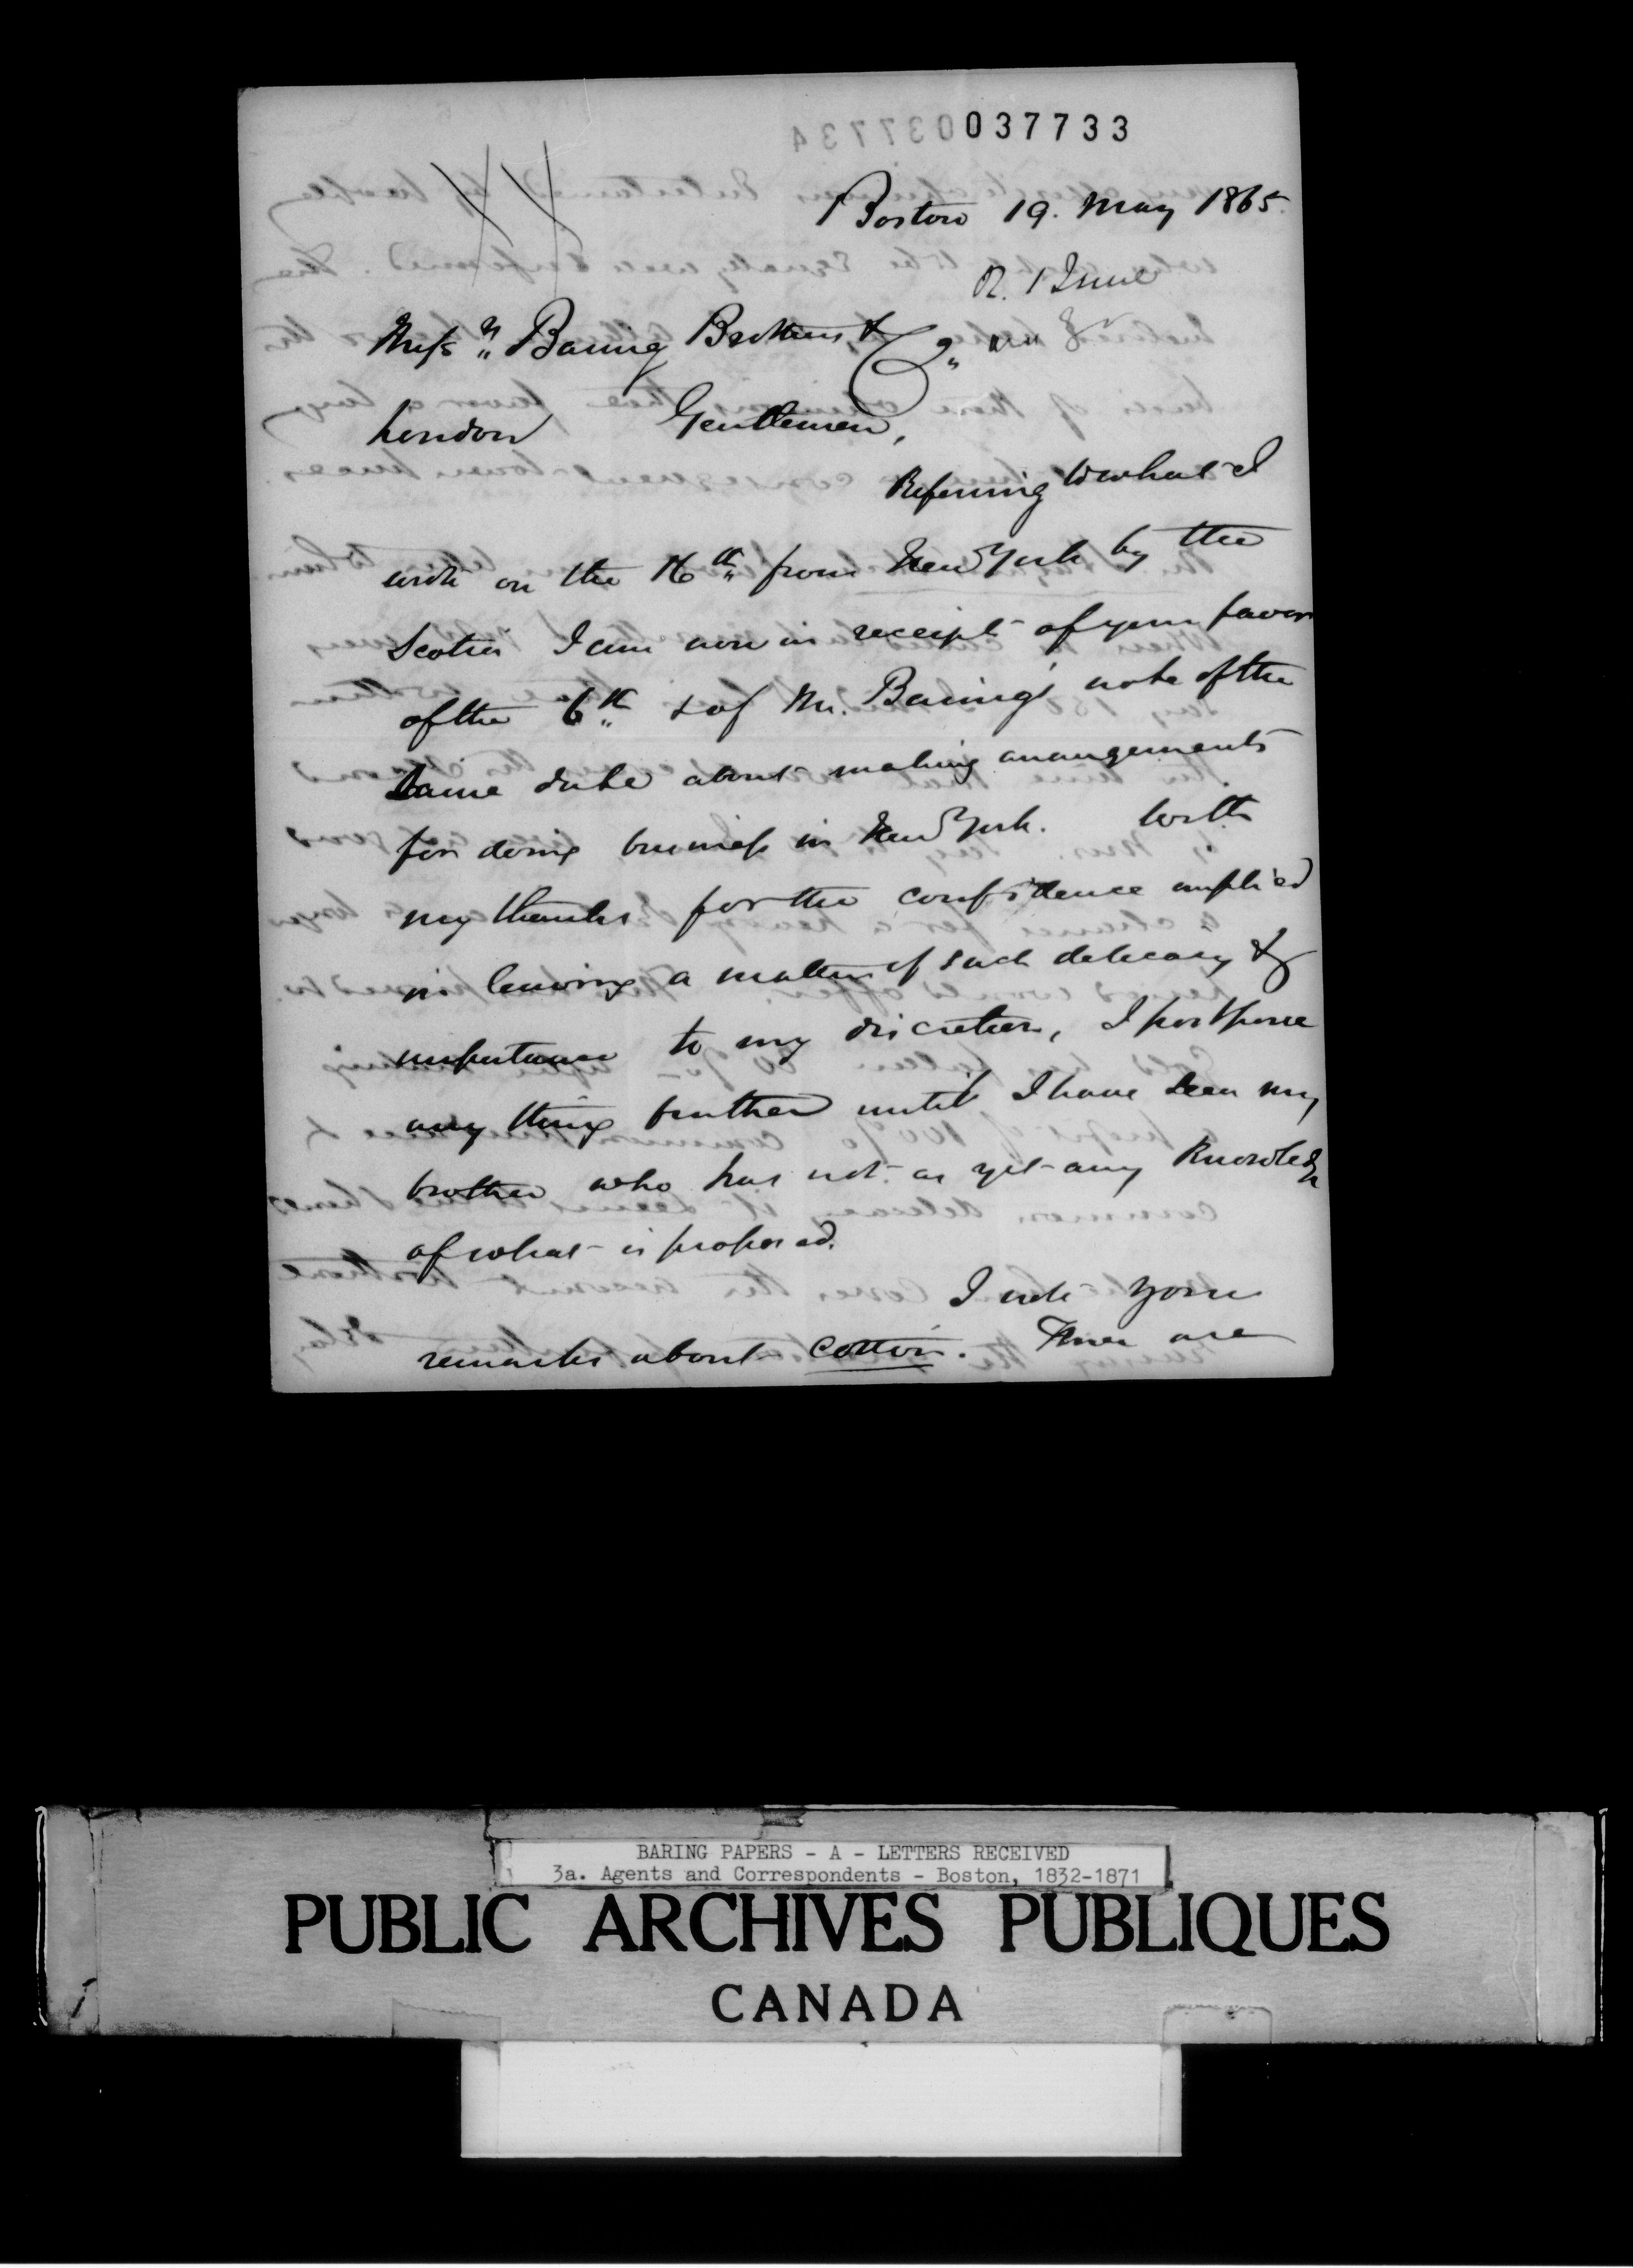 037733
Boston 19. May 1865.
R. 1 June
Mess.rs Baring Brothers & Co.
London Gentlemen,
Referring to what I
wrote on the 16th from New York by the
Scotia I am now in receipt of your favor
of the 6th & of Mr. Baring's note of the
same date about making arrangements
for doing business in New York. With
my thanks for the confidence implied
in leaving a matter of such delicacy &
importance to my discretion, I postpone
any thing further until I have seen my
brother who has not as yet any knowledge
of what is proposed.
I note your
remarks about cotton. There are
BARING PAPERS - A - LETTERS RECEIVED
3a. Agents and Correspondents - Boston, 1832-1871
PUBLIC ARCHIVES PUBLIQUES
CANADA